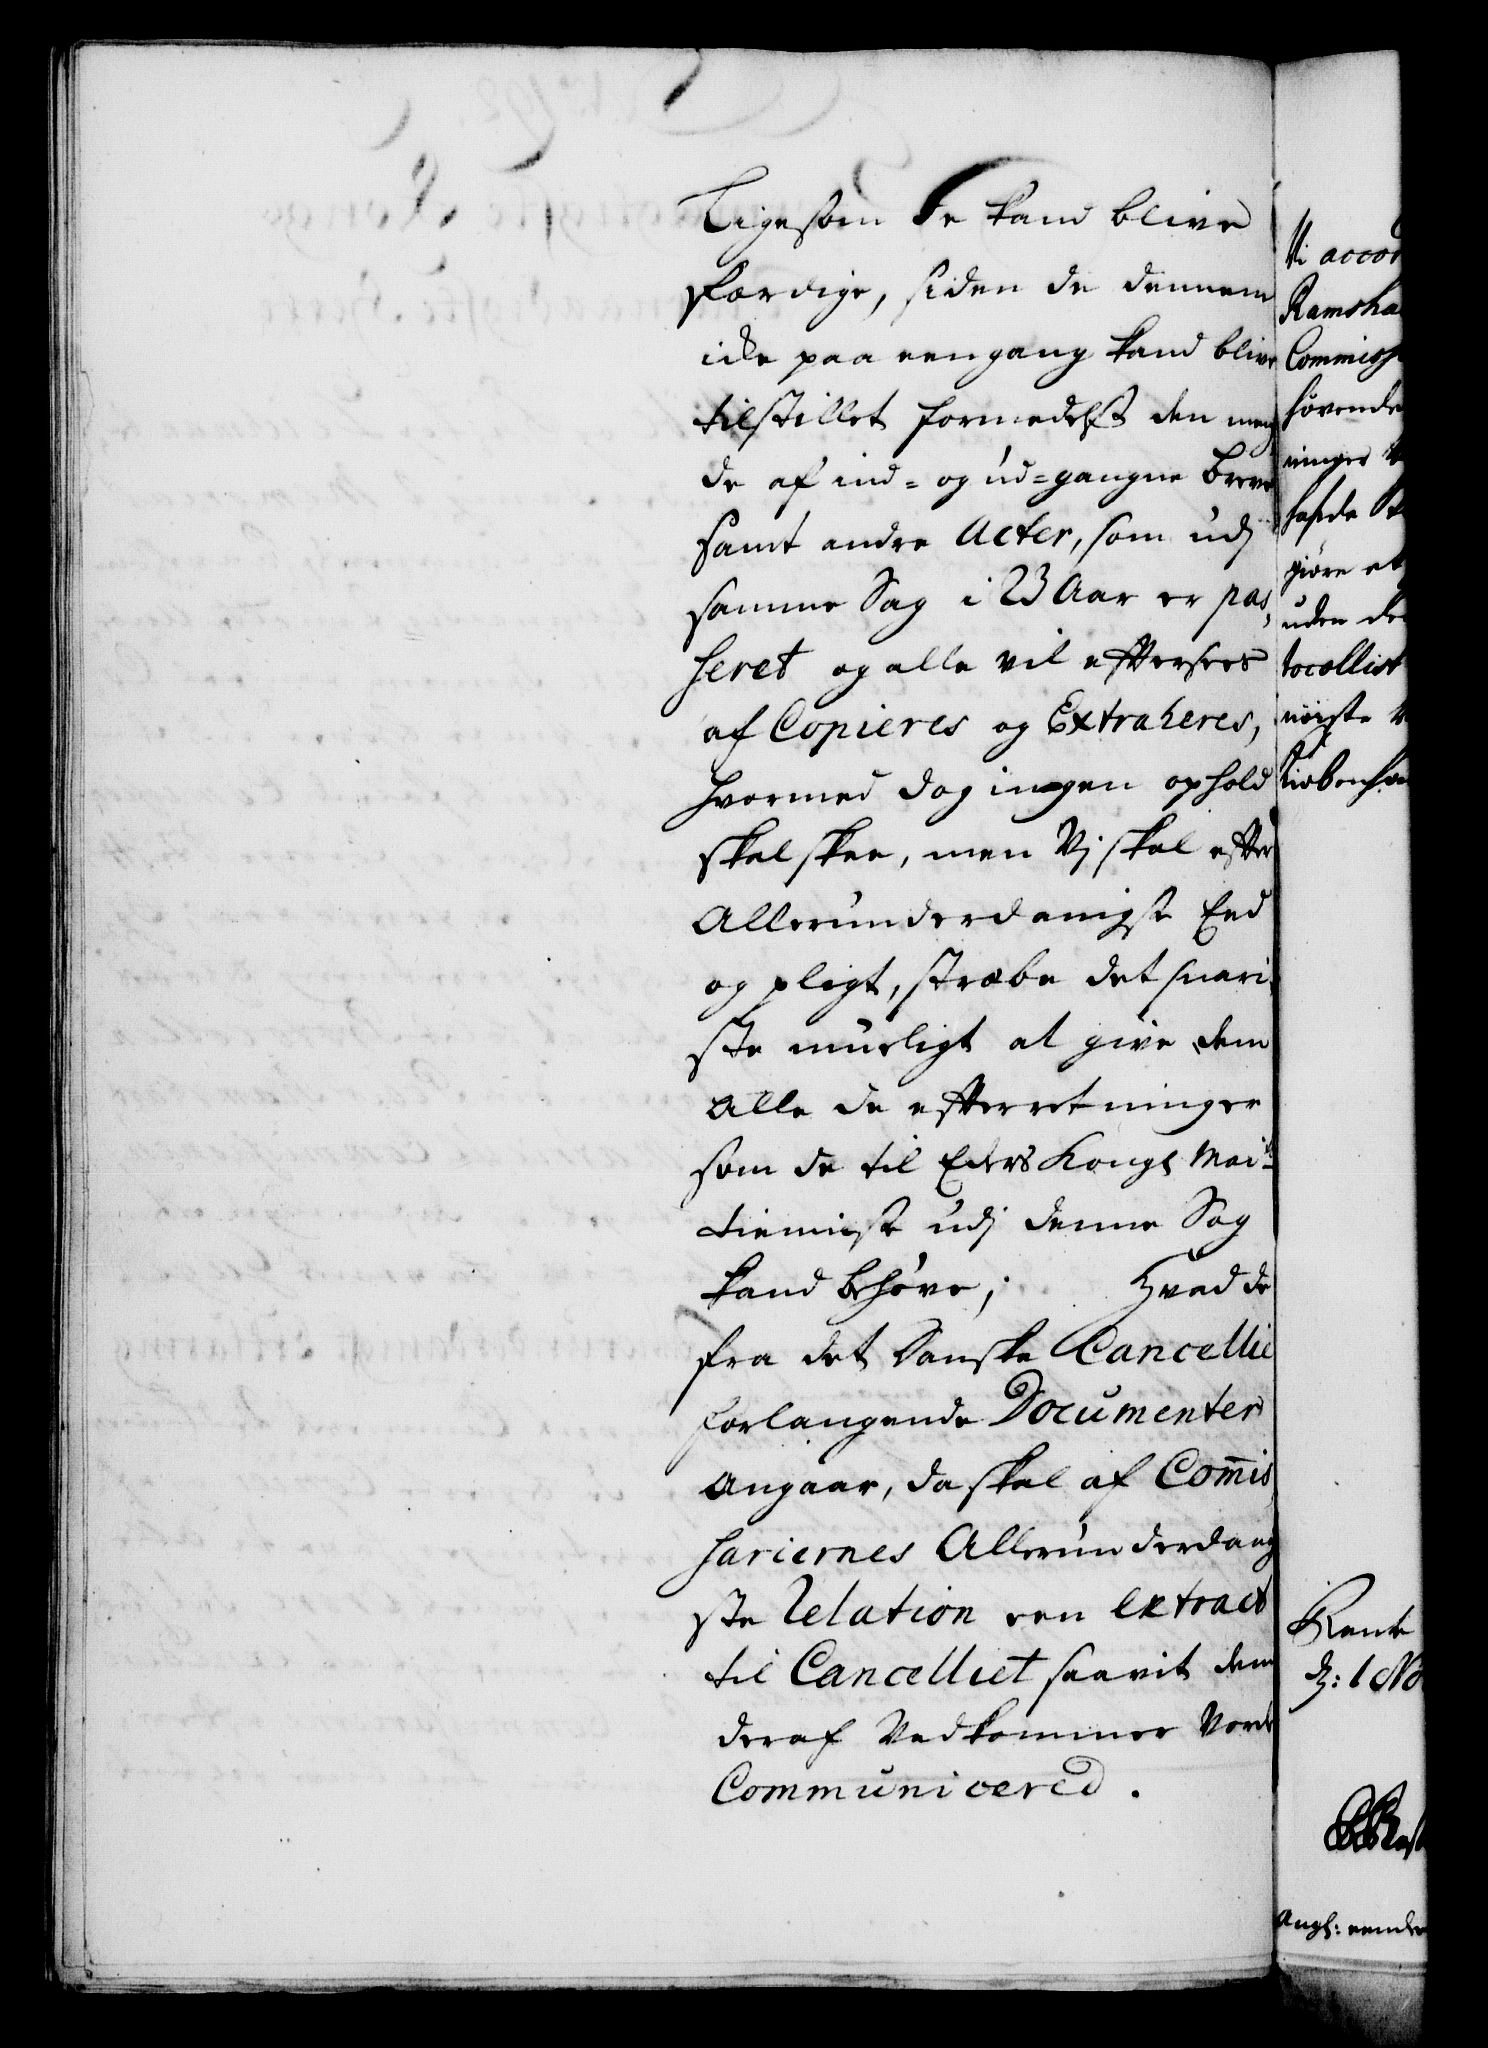 Ligesom de kand blive
færdige, siden de dennem
icke paa een gang kand blive
tilstillet formedelst den mæng
de af ind- og ud-gangne breve
samt andre Acter, som udj
samme Sag i 23 Aar er pas,
seret og alle vil efftersees
af Copieres og Extraheres,
hvormed dog ingen ophold
skal skee, men Vj skal effter
Allerunderdanigst Eed
og pligt, stræbe det snari
ste mueligt at give dem
alle de effterretninger
som de til Eders Kongl Mai:ts
tienniste udj denne Sag
kand behøve; Hvad de
fra det Danske Cancellie
forlangende Documenter
angaar, da skal af Com̄is
sariernes Allerunderdanig
ste Relation een extract
til Cancelliet saavit dem
deraf Vedkommer Vorde
Communicered.
Vi accor
Ramsha
Commiss
høvende
ninger
giøre et
uden de
tocollist
nøigste
Kiøbenha
Rente
d: 1 No